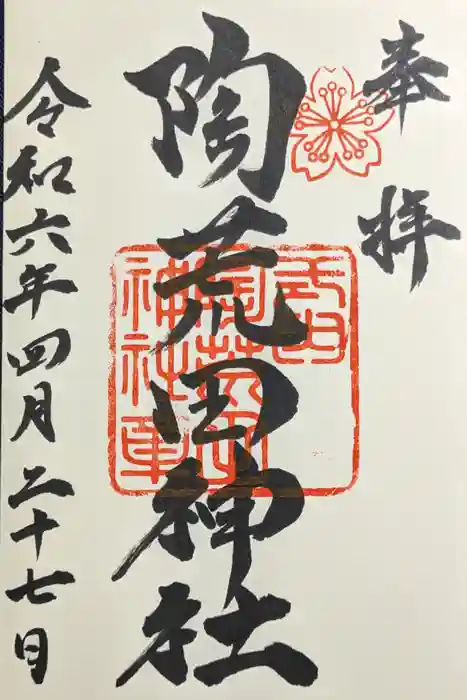 奉拝
陶荒田神社
令和六年四月二十七日